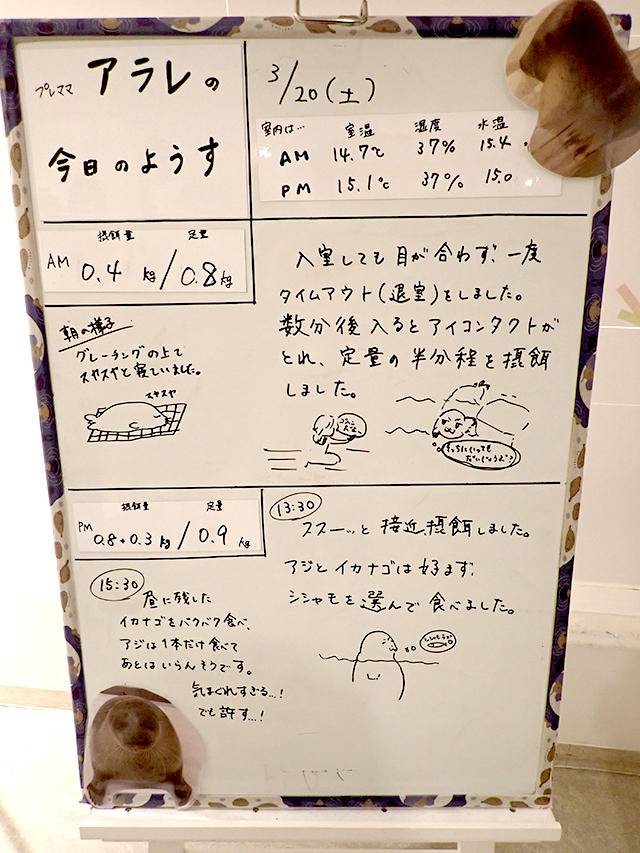 プレママ アラレの
今日のようす
3/20(土)
室内は… 室温 湿度 水温
AM 14.7℃ 37% 15.4
PM 15.1℃ 37% 15.0
摂餌量 定量
AM 0.4 kg / 0.8 kg
朝の様子
グレーチングの上で
スヤスヤと寝ていました。
スヤスヤ
入室しても目が合わず、一度
タイムアウト(退室)をしました。
数分後入るとアイコンタクトが
とれ、定量の半分程を摂餌
しました。
そっちにいっても
だいじょうぶ?
摂餌量 定量
PM 0.8+0.3 kg / 0.9 kg
13:30
スス―ッと接近、摂餌しました。
アジとイカナゴは好まず、
シシャモを選んで食べました。
15:30
昼に残した
イカナゴをパクパク食べ、
アジは1本だけ食べて
あとはいらんそうです。
気まぐれすぎる…!
でも許す…!